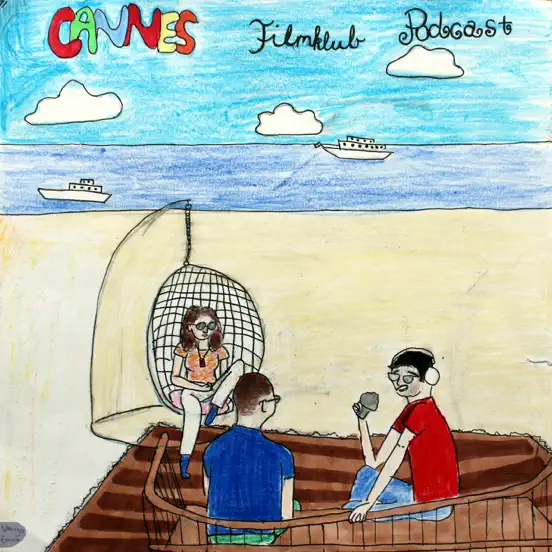 CANNES Filmklub Podcast